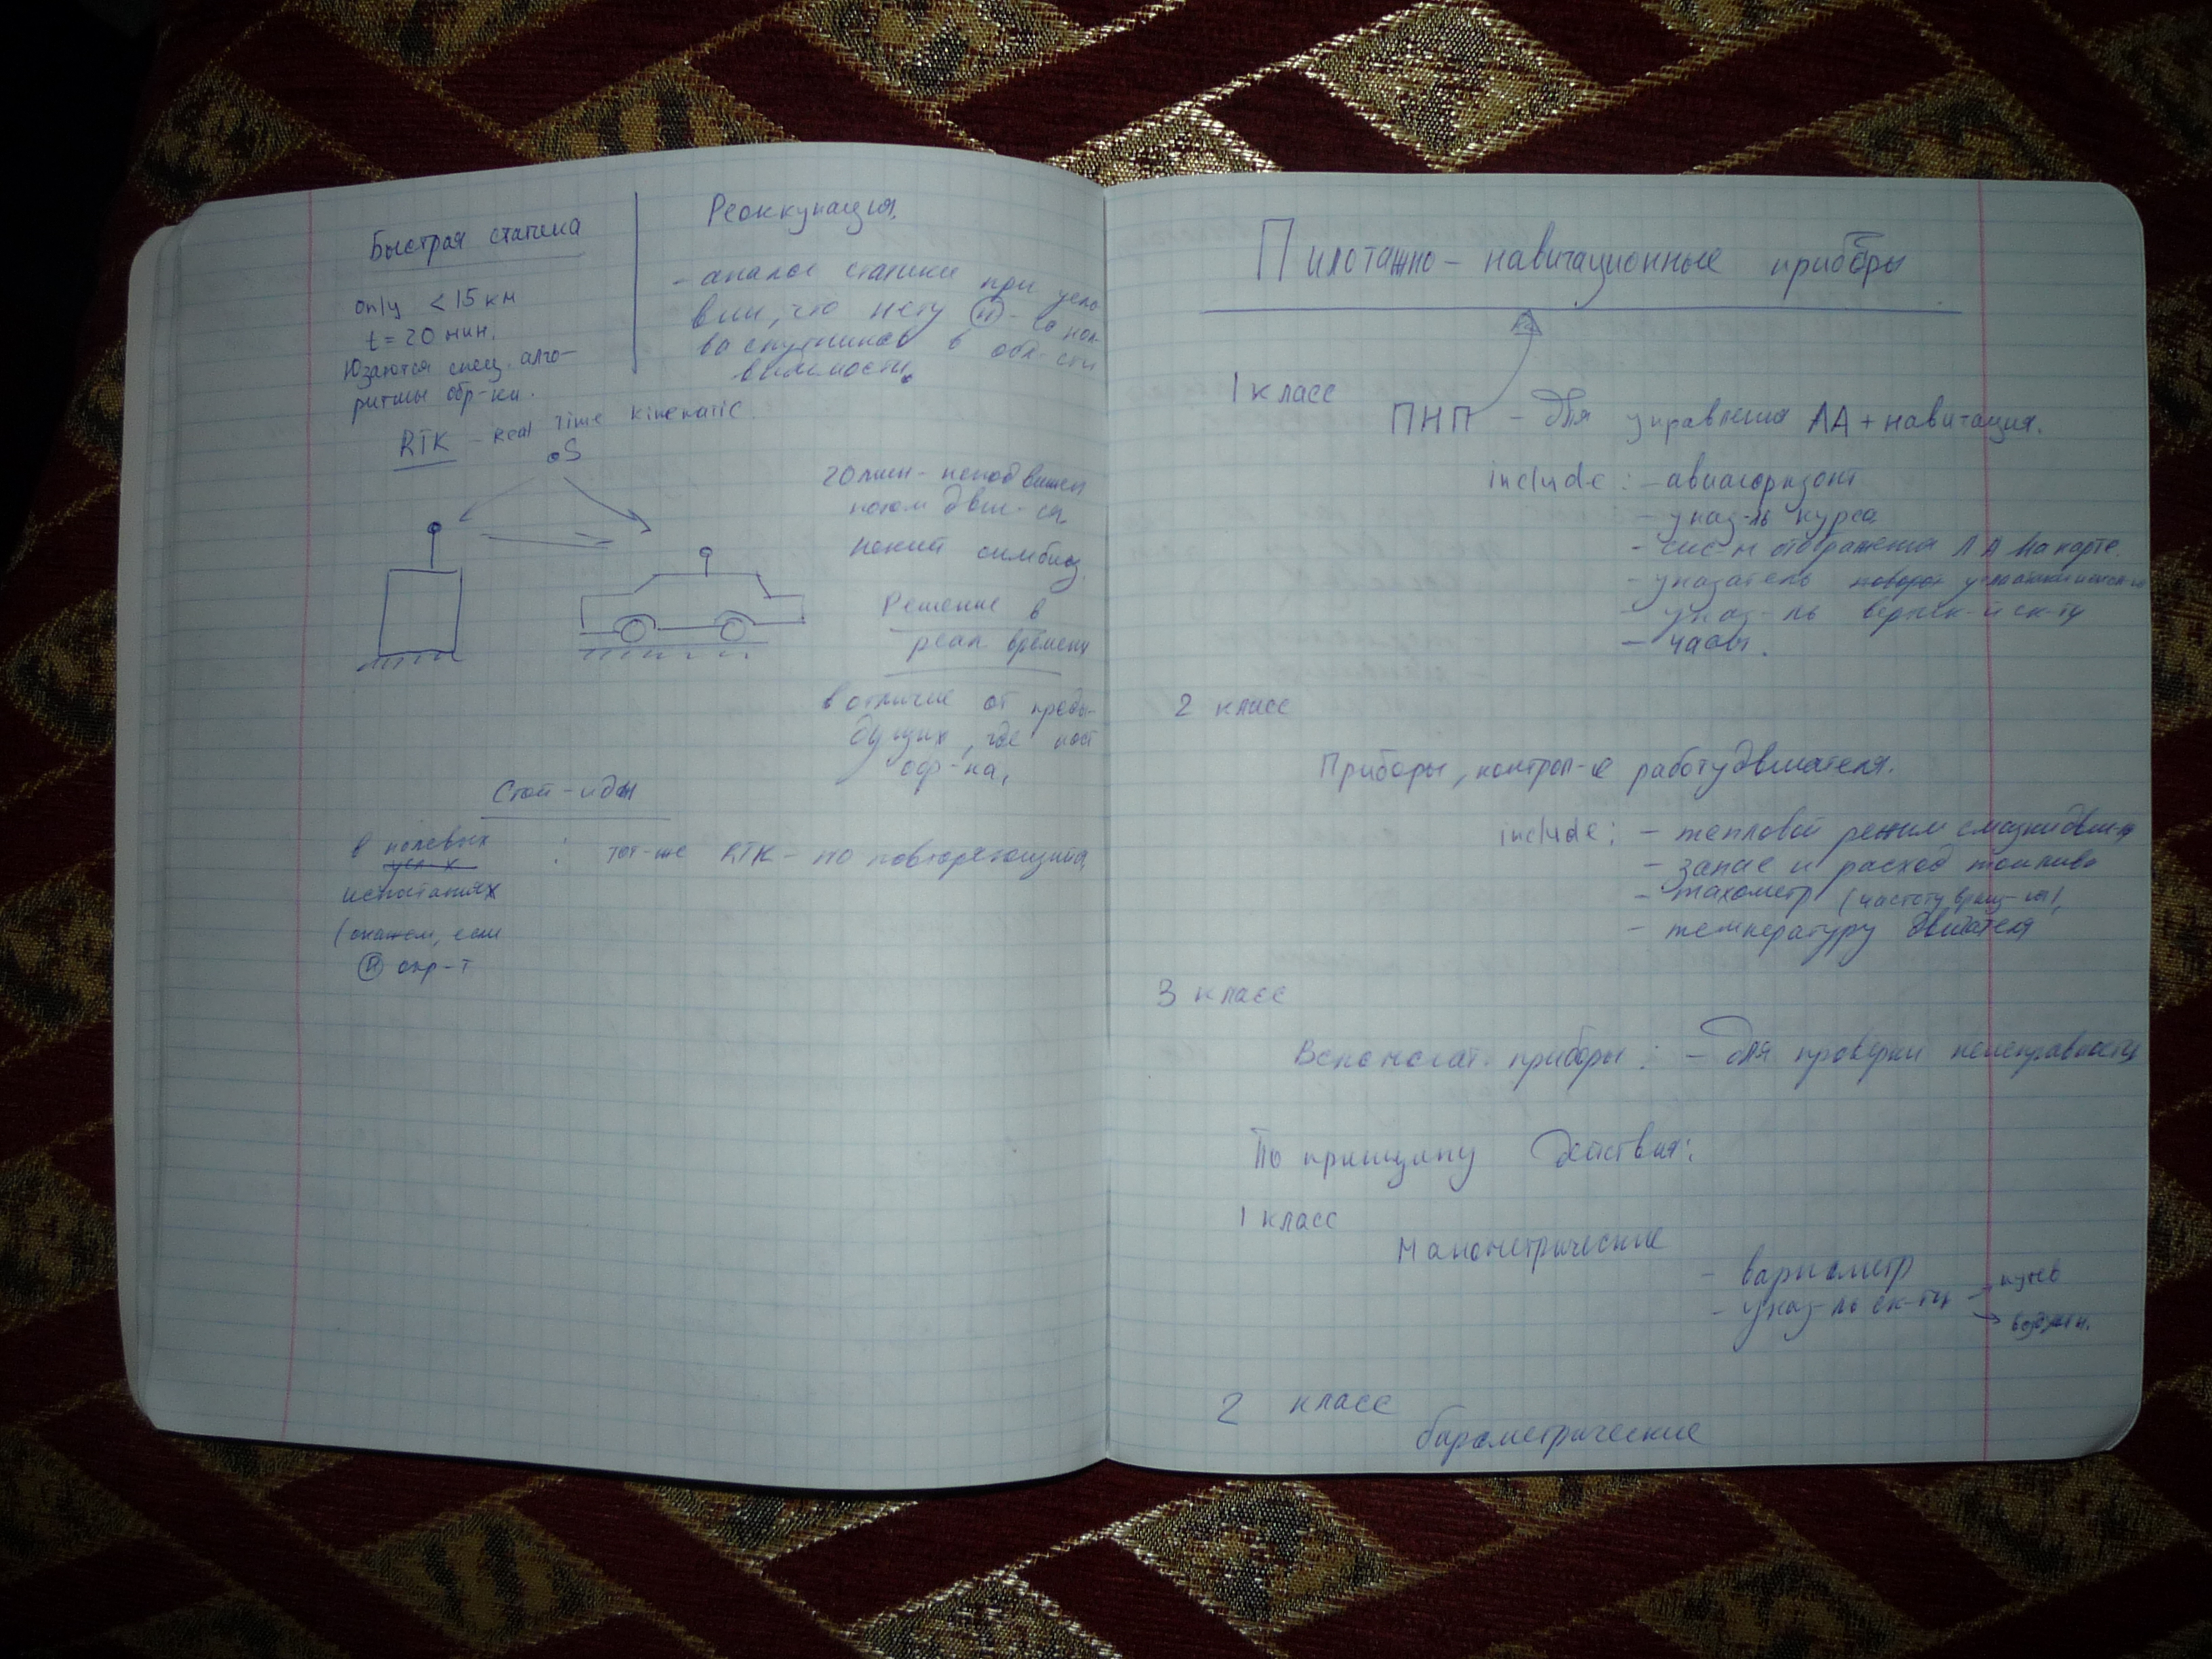 Быстрая статика
only < 15 км
t = 20 мин.
Юзаются спец. алго-
ритмы обр-ки.
Реоккупация.
- аналог статики при усло
вии, что нету Ⓗ-го кол-
ва спутников в обл-сти
видимости.
RTK - Real Time Kinematic.
S
20 мин - неподвижен
потом движ-ся.
некий симбиоз.
Решение в
реал времени
в отличие от преды-
дущих, где пост
обр-ка.
Стой-иди
в полевых
усл-х
испытаниях
(скажем, если
Ⓗ опр-т
: тот-же RTK - но повторяющийся
Пилотажно - навигационные приборы
1 класс
ПНП - для управления ЛА + навигация.
include: - авиагоризонт
- указ-ль курса
- сис-м отображения ЛА на карте.
- указатель поворот угла атаки и
- указ-ль вертик-й ск-ти
- часы.
2 класс
Приборы, контрол-е работу двигателя.
include: - тепловой режим смазки двиг-я
- запас и расход топлива
- тахометр (частоту вращ-ия),
- температуру двигателя
3 класс
Вспомогат. приборы: - для проверки неисправности
По принципу действия:
1 класс
Манометрические
- вариометр
- указ-ль ск-ти - путев
→ воздушн.
2 класс
барометрические